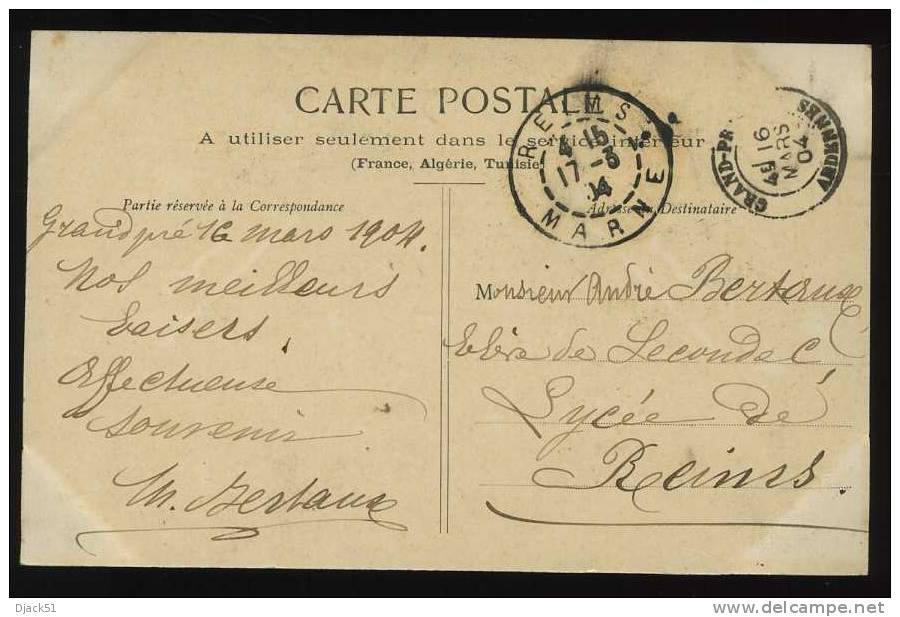 CARTE POSTALE
A utiliser seulement dans le service intérieur
(France, Algérie, Tunisie)
REIMS
4 15
17 -3
04
MARNE
GRAND-PR
4E 16
MARS
04
ARDENNES
Partie réservée à la Correspondance
Grandpré 16 mars 1904.
Nos meilleurs
baisers
Affectueuse
souvenir
M. Bertaux
Adresse du Destinataire
Monsieur André Bertaux
Elève de Seconde C
Lycée de
Reims.
Djack51
www.delcampe.net